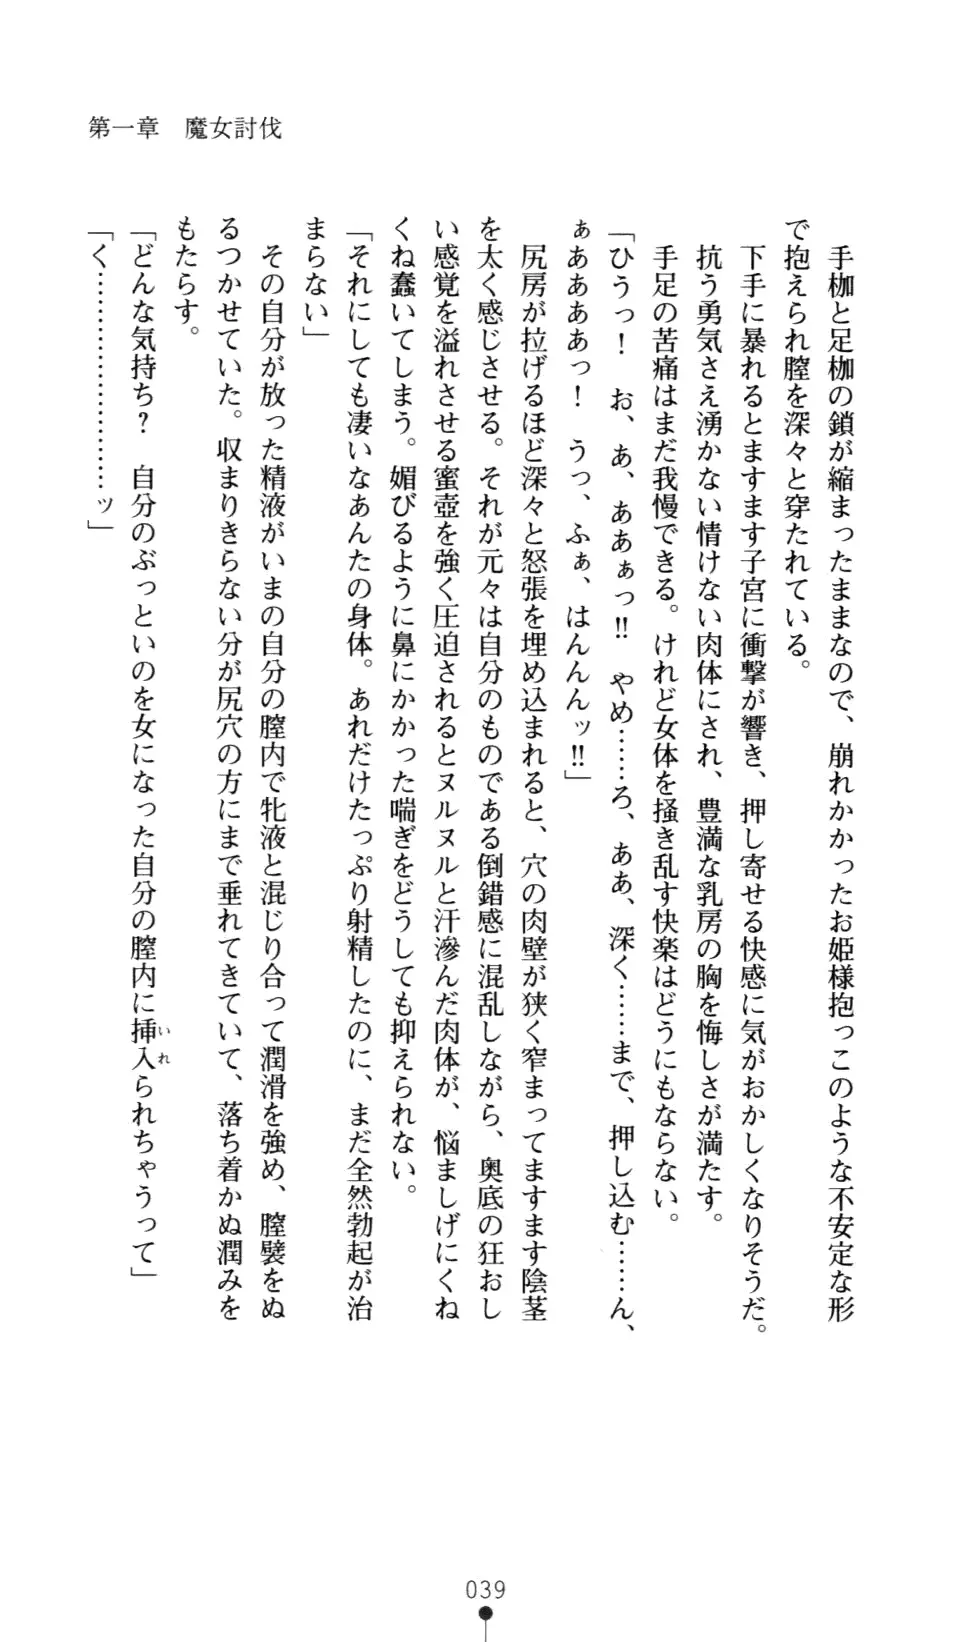 第一章　魔女討伐
　手枷と足枷の鎖が縮まったままなので、崩れかかったお姫様抱っこのような不安定な形
で抱えられ膣を深々と穿たれている。
　下手に暴れるとますます子宮に衝撃が響き、押し寄せる快感に気がおかしくなりそうだ。
　抗う勇気さえ湧かない情けない肉体にされ、豊満な乳房の胸を悔しさが満たす。
　手足の苦痛はまだ我慢できる。けれど女体を掻き乱す快楽はどうにもならない。
「ひうっ！　お、あ、ああぁっ!!　やめ……ろ、ああ、深く……まで、押し込む……ん、
ぁああああっ！　うっ、ふぁ、はんんんッ!!」
　尻房が拉げるほど深々と怒張を埋め込まれると、穴の肉壁が狭く窄まってますます陰茎
を太く感じさせる。それが元々は自分のものである倒錯感に混乱しながら、奥底の狂おし
い感覚を溢れさせる蜜壺を強く圧迫されるとヌルヌルと汗滲んだ肉体が、悩ましげにくね
くね蠢いてしまう。媚びるように鼻にかかった喘ぎをどうしても抑えられない。
「それにしても凄いなあんたの身体。あれだけたっぷり射精したのに、まだ全然勃起が治
まらない」
　その自分が放った精液がいまの自分の膣内で牝液と混じり合って潤滑を強め、膣襞をぬ
るつかせていた。収まりきらない分が尻穴の方にまで垂れてきていて、落ち着かぬ潤みを
もたらす。
「どんな気持ち？　自分のぶっといのを女になった自分の膣内に挿入られちゃうって」
いれ
「く…………………ッ」
039